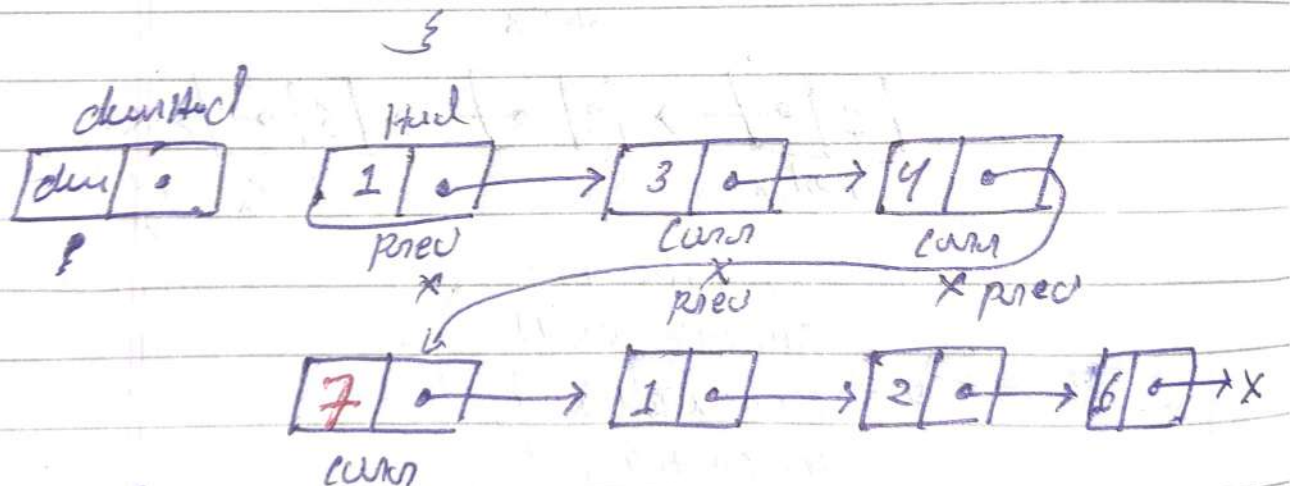 }
dumHed Hed
dum 1 3 4
prev Curr curr
x x x prev
prev
7 1 2 6 x
curr